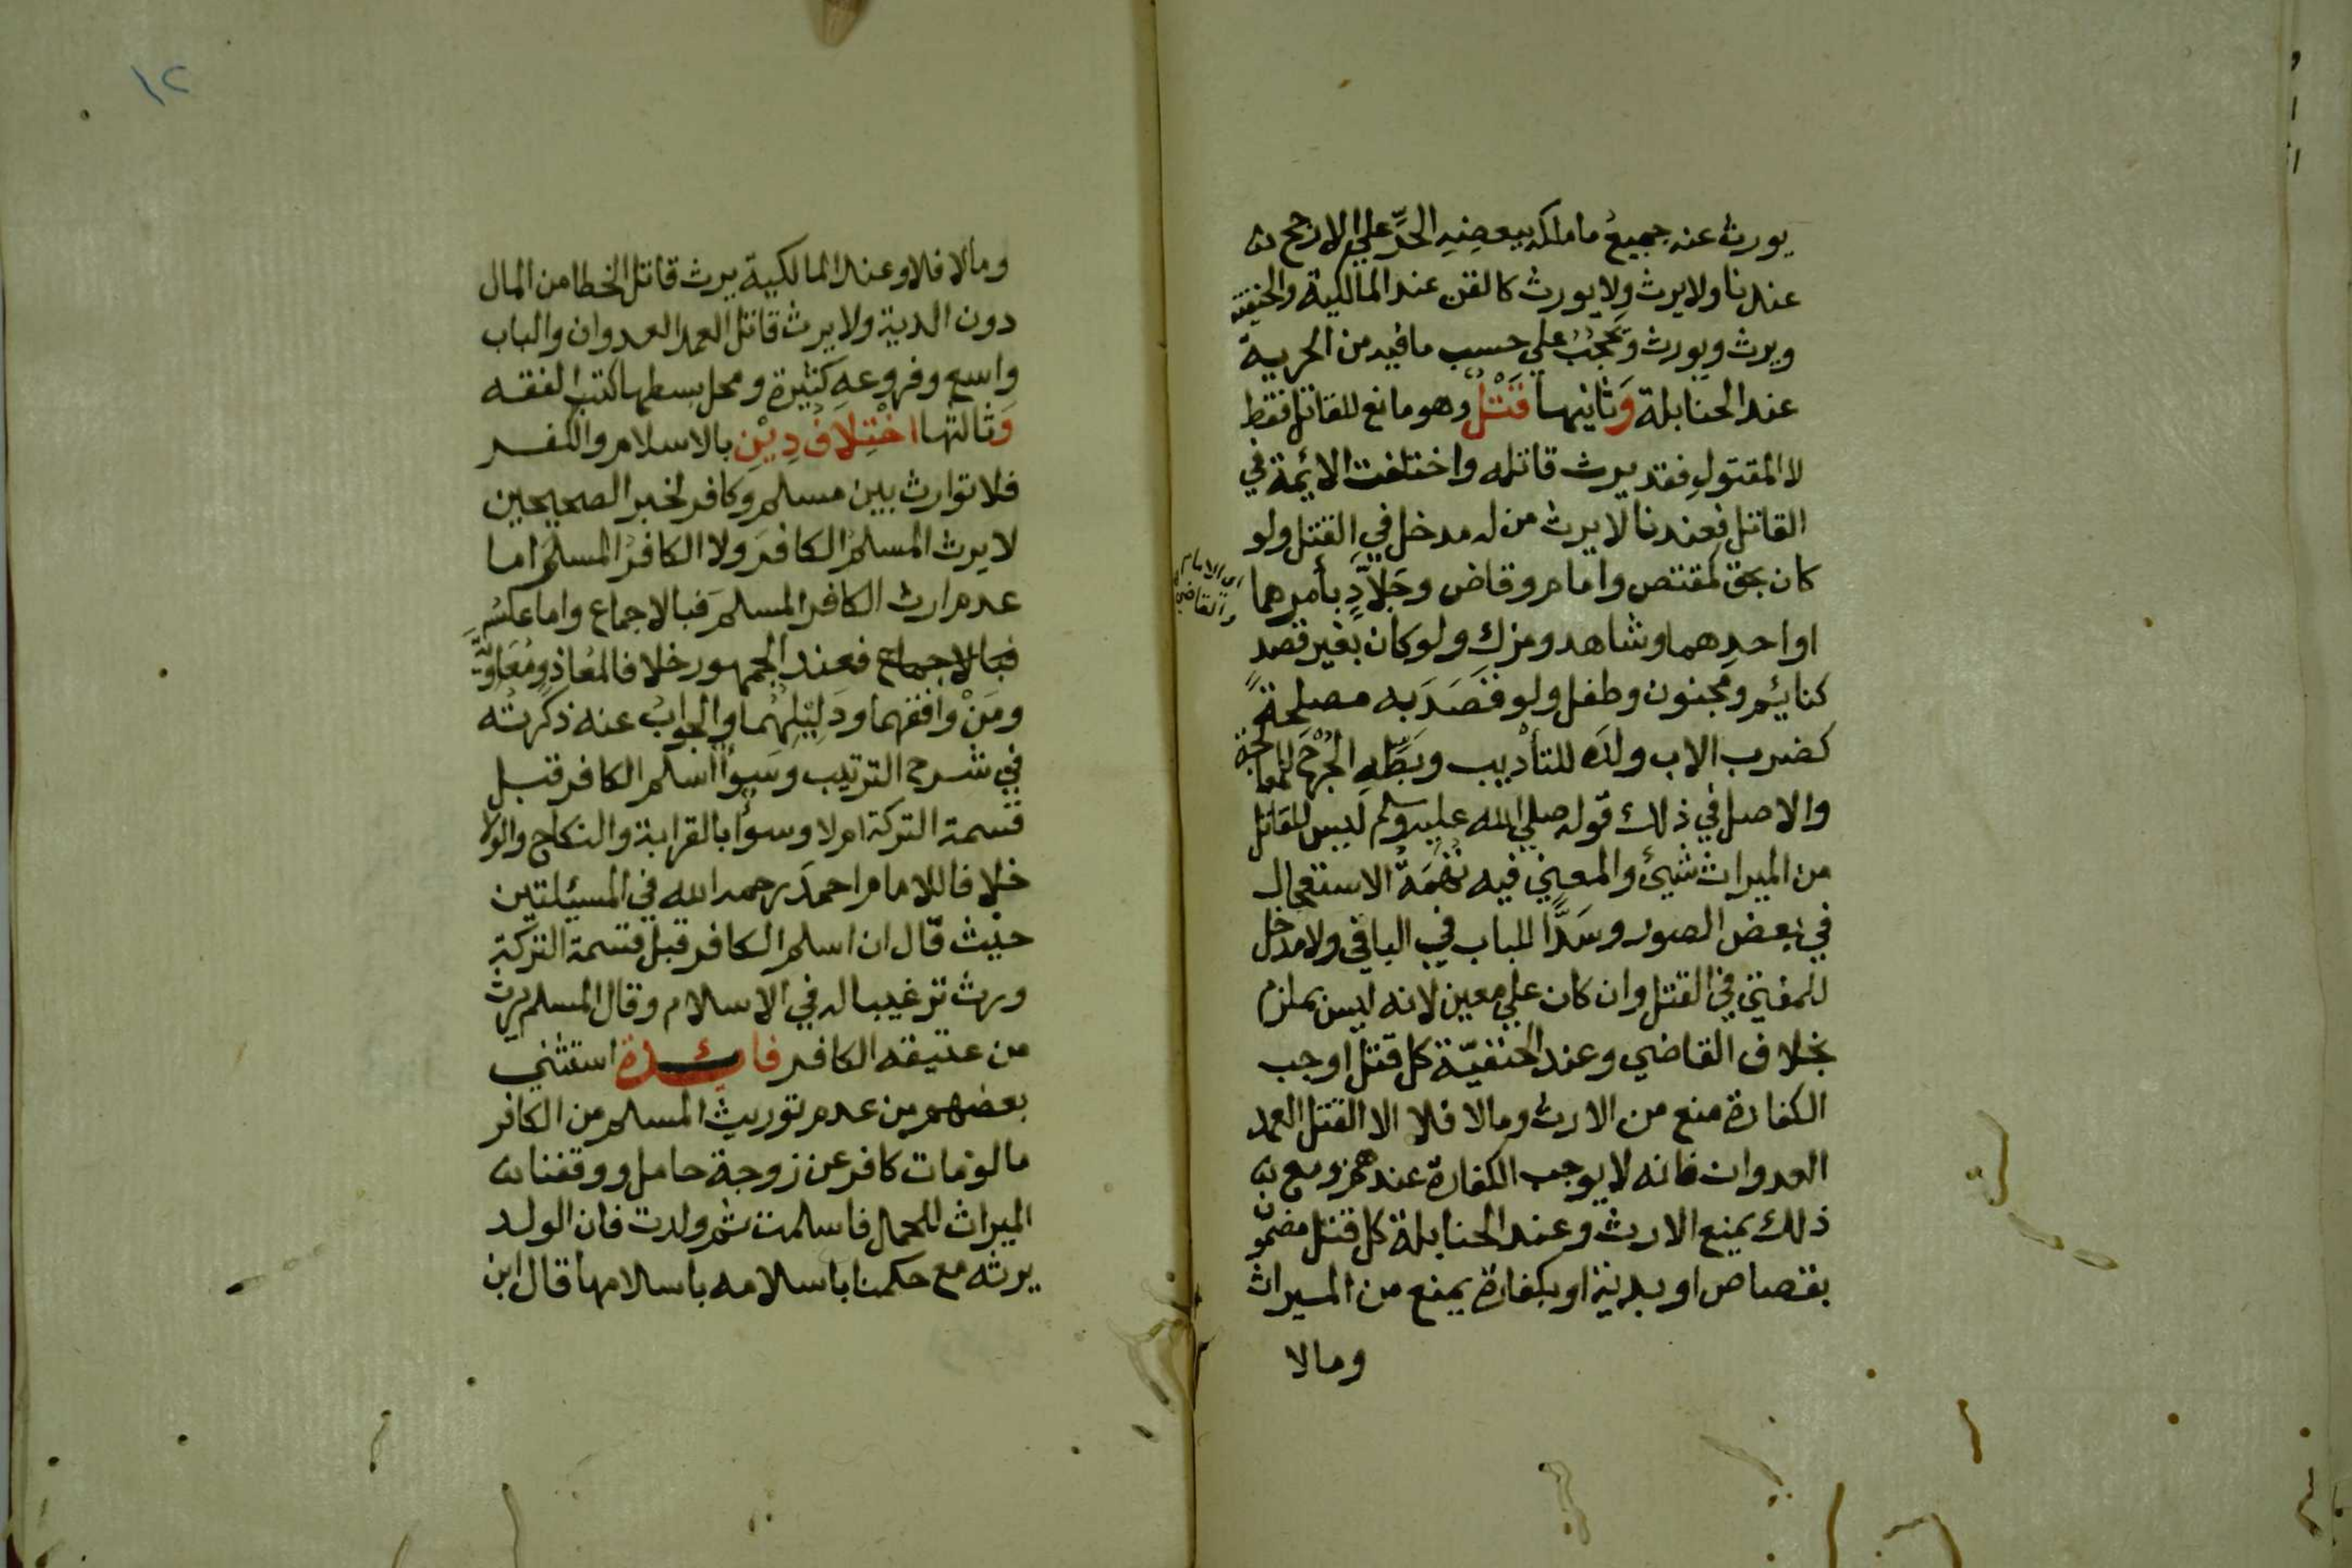 يورث عنه جميعُ ما ملكه ببعضِهِ الحُرِّ علي الارجح
عندنا ولا يرث ولا يورث كالقن عند المالكية والحنفية
ويرث ويورث ويَحجُبُ علي حسب ما فيه من الحرية
عند الحنابلة وَثانيها قَتْلٌ وهو مانع للقاتل فقط
لا المقتولِ فقد يرث قاتله واختلفت الائمة في
القاتل فعندنا لا يرث من له مدخل في القتل ولو
كان بحق كمقتص وامام وقاض وجَلاَّدٍ بأمرهما
اي الامام
والقاضي
او احدِهما وشاهد ومزكٍ ولو كان بغير قصدٍ
كنائم ومجنون وطفل ولو قَصَدَ به مصلحةً
كضرب الاب ولدَه للتأديب وبَطِّهِ الجُرْحَ للمعالجة
والاصل في ذلك قوله صلي الله عليه وسلم ليس للقاتل
من الميراث شيئ والمعني فيه تُهَمَةُ الاستعجال
في بعض الصور وسَدًّا للباب في الباقي ولا مدخل
للمفتي في القتل وان كان علي معين لانه ليس بملزم
بخلاف القاضي وعند الحنفيّة كل قتل اوجب
الكفارة منع من الارث ومالا فلا الا القتل العمد
العدوان فانه لا يوجب الكفارة عندهم ومع
ذلك يمنع الارث وعند الحنابلة كل قتل مضمون
بقصاص او بدية او بكفارة يمنع من الميراث
ومالا
١٢
ومالا فلا وعند المالكية يرث قاتل الخطا من المال
دون الدية ولا يرث قاتل العمد العدوان والباب
واسع وفروعه كثيرة ومحل بسطها كتب الفقه
وَثالثها اخْتِلاَفُ دِيْنِ بالاسلام والكفر
فلا توارث بين مسلم وكافر لخبر الصحيحين
لا يرث المسلمُ الكافرَ ولا الكافرُ المسلمَ اما
عدم ارث الكافر المسلمَ فبالاجماع واما عكسُه
فبالاجماع فعند الجمهور خلافا لمُعاذ ومُعَاوِيَةَ
ومَنْ وافقهما ودَلِيْلِهُمَا والجوابُ عنه ذكرتُه
في شرح الترتيب وسَوأ اسلم الكافر قبل
قسمة التركة ام لا وسوأ بالقرابة والنكاح والولا
خلافا للامام احمدَ رحمه الله في المسئلتين
حيث قال ان اسلم الكافر قبل قسمة التركة
ورث ترغيبا له في الاسلام وقال المسلم يرث
من عتيقه الكافر فائدة استثني
بعضهم من عدم توريث المسلم من الكافر
ما لو مات كافر عن زوجة حامل ووقفنا
الميراث للحمل فاسلمت ثم ولدت فان الولد
يرثه مع حكمنا باسلامه باسلامها قال ابن